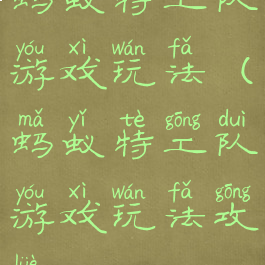 蚂蚁特工队
yóu xì wán fǎ
游戏玩法(
mǎ yǐ tè gōng duì
蚂蚁特工队
yóu xì wán fǎ gōng
游戏玩法攻
lüè